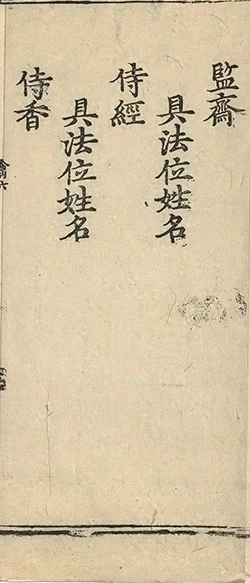 監齋
具法位姓名
侍經
具法位姓名
侍香